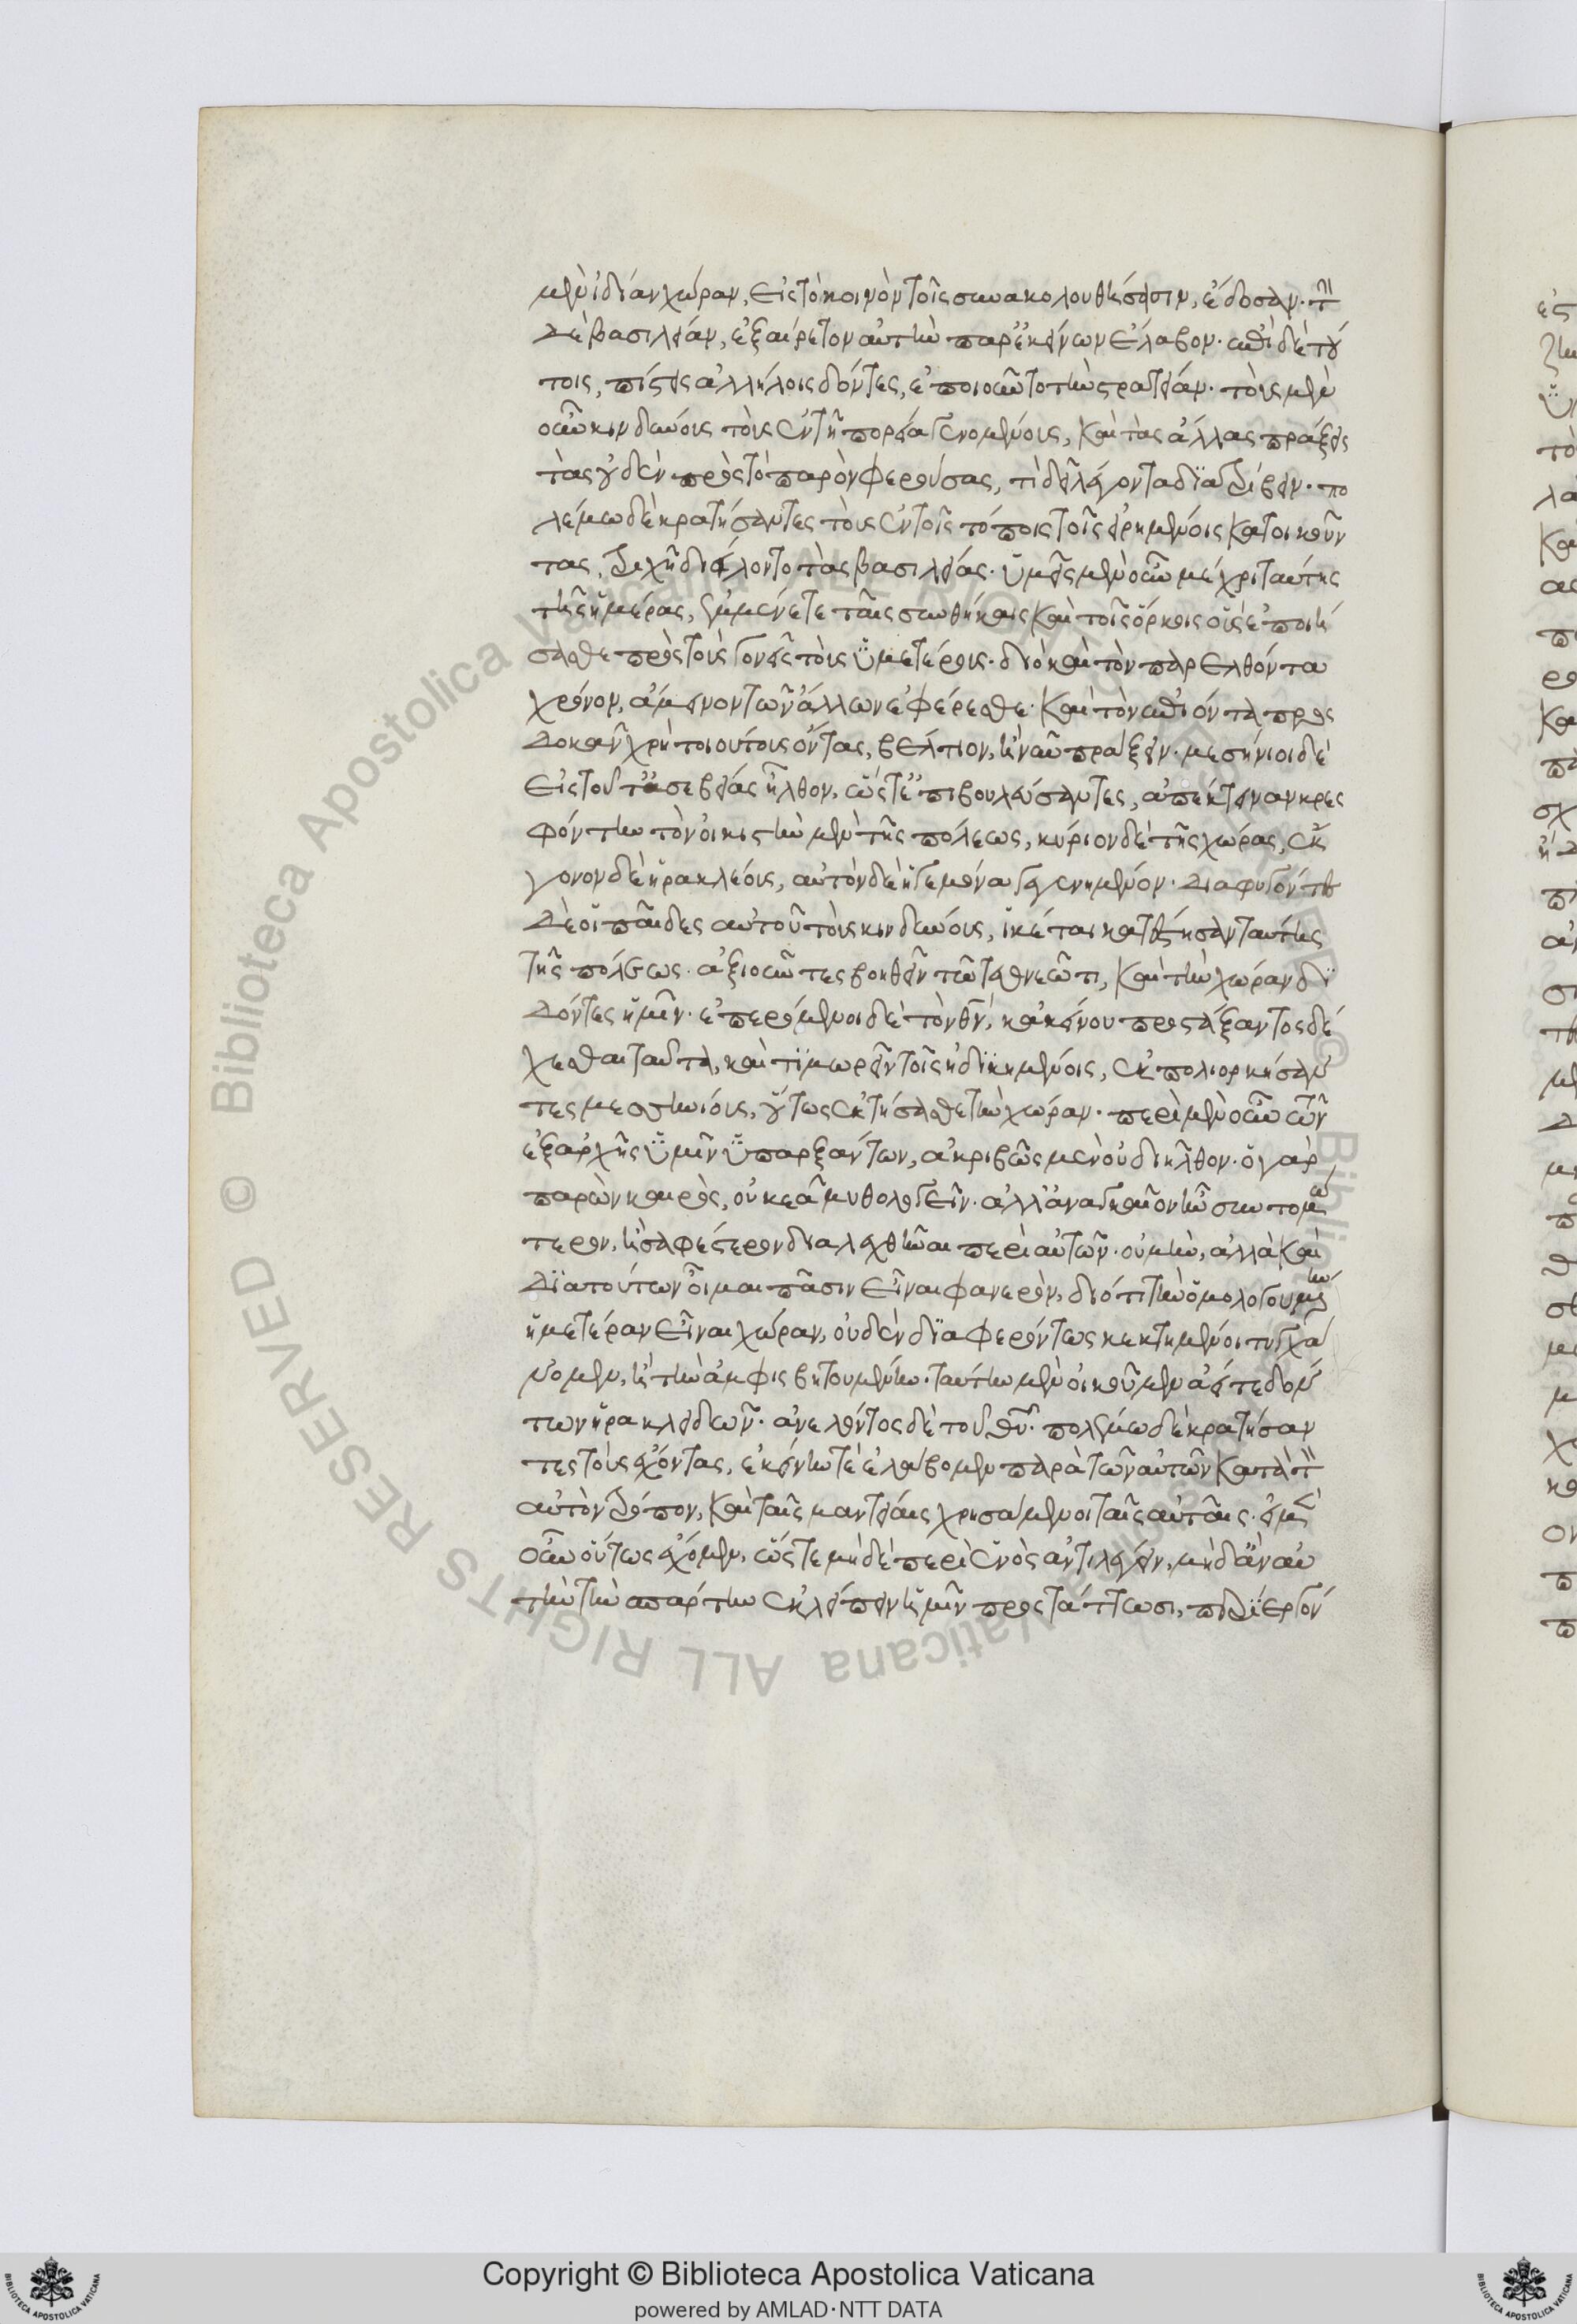 μὲν ἰδίαν χώραν, εἰς τὸ κοινὸν τοῖς συνακολουθήσασιν, ἔδοσαν· τὴν
δὲ βασιλείαν, ἐξαίρετον αὐτὴν παρ' ἐκείνων ἔλαβον· ἐπὶ δὲ τού
τοις, πίστεις ἀλλήλοις δόντες, ἐποιοῦντο τὴν στρατείαν· τοὺς μὲν
οὖν κινδύνους τοὺς ἐν τῇ πορείᾳ γενομένους, καὶ τὰς ἄλλας πράξεις
τὰς οὐδὲν πρὸς τὸ παρὸν φερούσας, τί δεῖ λέγοντα διατρίβειν· πο
λέμῳ δὲ κρατήσαντες τοὺς ἐν τοῖς τόποις τοῖς εἰρημένοις κατοικοῦν
τας, τριχῇ διείλοντο τὰς βασιλείας· ὑμεῖς μὲν οὖν μέχρι ταύτης
τῆς ἡμέρας, ἐμμένετε ταῖς συνθήκαις καὶ τοῖς ὅρκοις οὓς ἐποιή
σασθε πρὸς τοὺς γονεῖς τοὺς ὑμετέρους· διὸ καὶ τὸν παρελθόντα
χρόνον, ἄμεινον τῶν ἄλλων ἐφέρεσθε· καὶ τὸν ἐπιόντα προς
δοκᾶν χρὴ τοιούτους ὄντας, βέλτιον, ἢ νῦν πράξειν· μεσήνιοι δὲ
εἰς τοῦτ' ἀσεβείας ἦλθον, ὥστ' ἐπιβουλεύσαντες, ἀπέκτειναν κρες
φόντην τὸν οἰκιστὴν μὲν τῆς πόλεως, κύριον δὲ τῆς χώρας, ἔκ
γονον δὲ ἡρακλέους, αὐτὸν δὲ ἡγεμόνα γεγενημένον· διαφυγόντες
δὲ οἱ παῖδες αὐτοῦ τοὺς κινδύνους, ἱκέται κατέστησαν ταύτης
τῆς πόλεως· ἀξιοῦντες βοηθεῖν τῷ τεθνεῶτι, καὶ τὴν χώραν δι
δόντες ἡμῖν· ἐπερόμενοι δὲ τὸν θν, κἀκείνου προστάξαντος δέ
χεσθαι ταῦτα, καὶ τιμωρεῖν τοῖς ἠδικημένοις, ἐκπολιορκήσαν
τες μεσσηνίους, οὕτως ἐκτήσασθε τὴν χώραν· περὶ μὲν οὖν τῶν
ἐξαρχῆς ὑμῖν ὑπαρξάντων, ἀκριβῶς μὲν οὐ διῆλθον· ὁ γὰρ
παρὼν καιρὸς, οὐκ ἐᾷ μυθολογεῖν· ἀλλ' ἀναγκαῖον ἦν συντομώ
τερον, ἢ σαφέστερον διαλεχθῆναι περὶ αὐτῶν· οὐ μὴν, ἀλλὰ καὶ
διὰ τούτων οἶμαι πᾶσιν εἶναι φανερὸν, διότι τὴν ὁμολογουμένην
ἡμετέραν εἶναι χώραν, οὐδὲν διαφερόντως κεκτημένοι τυγχά
νομεν, ἢ τὴν ἀμφισβητουμένην· ταύτην μὲν οἰκοῦμεν ἅτε δόν
των ἡρακλειδῶν· ἀνελόντος δὲ τοῦ θυ· πολέμῳ δὲ κρατήσαν
τες τοὺς ἔχοντας, ἐκείνην τε ἐλάβομεν παρὰ τῶν αὐτῶν κατὰ τὸν
αὐτὸν τρόπον, καὶ ταῖς μαντείαις χρησάμενοι ταῖς αὐταῖς· εἰ μὲν
οὖν οὕτως ἔχομεν, ὥστε μηδὲ περὶ ἑνὸς ἀντιλέγειν, μηδ' ἂν αὐ
τὴν τὴν σπάρτην ἐκλείπειν ἡμῖν προστάττωσι, περίεργόν